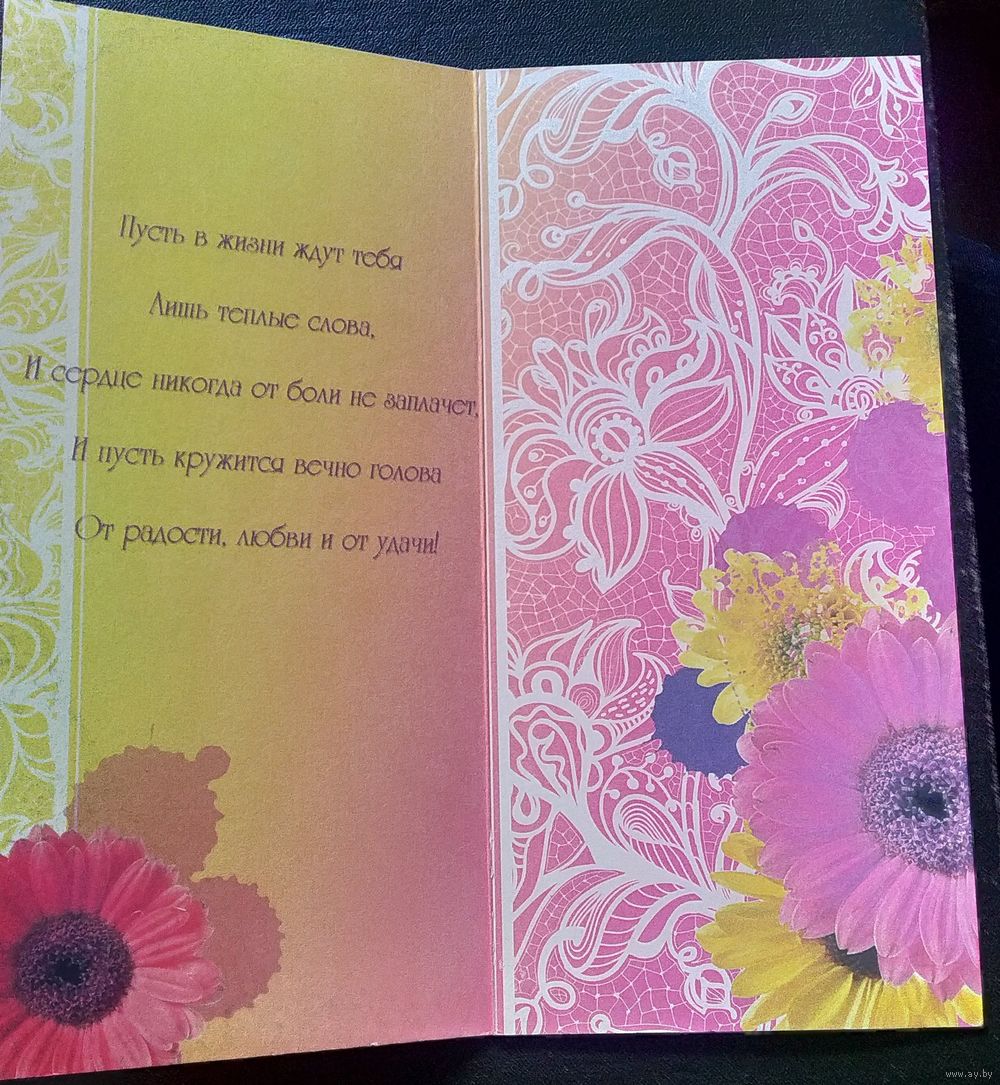 Пусть в жизни ждут тебя
Лишь теплые слова,
И сердце никогда от боли не заплачет,
И пусть кружится вечно голова
От радости, любви и от удачи!
www.ay.by